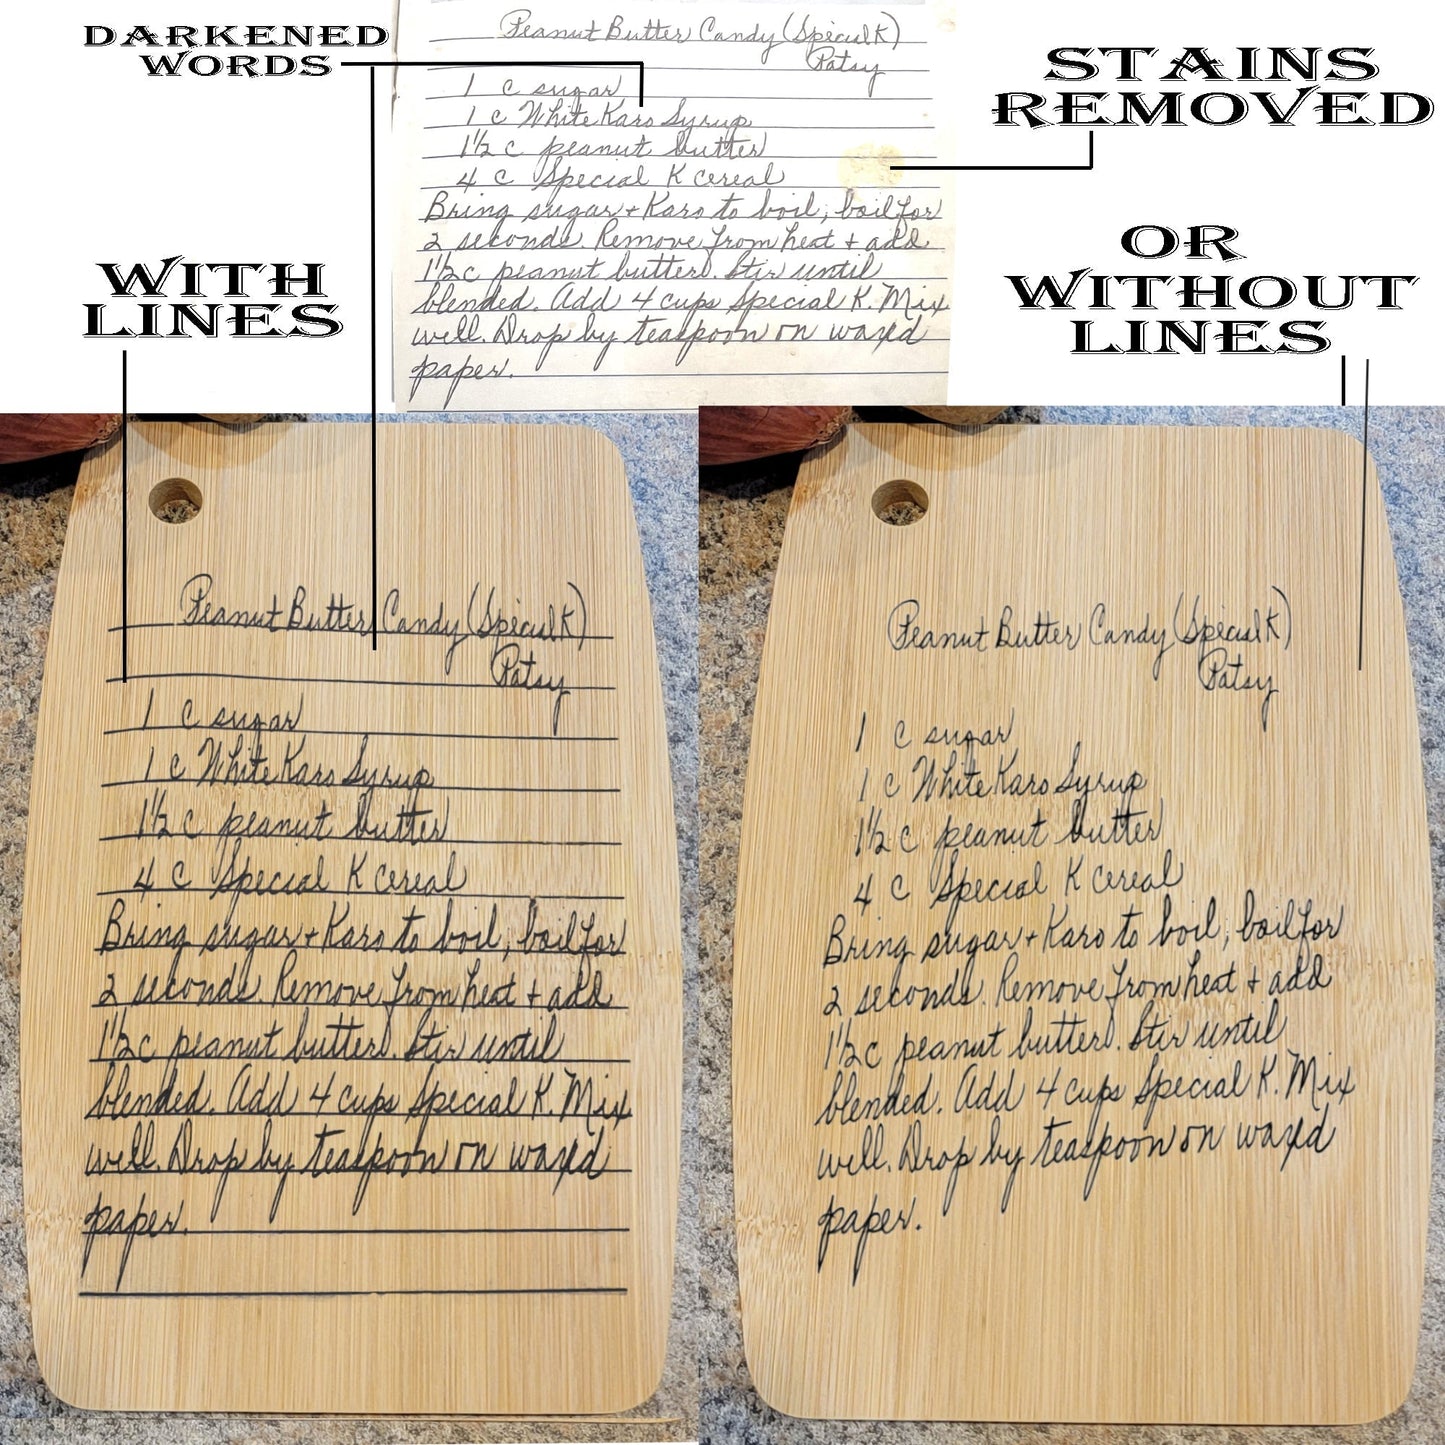 DARKENED
WORDS
STAINS
REMOVED
WITH
LINES
OR
WITHOUT
LINES
Peanut Butter Candy (Special K)
Patsy
1 c sugar
1 c White Karo Syrup
1½ c peanut butter
4 c Special K cereal
Bring sugar + Karo to boil, boil for
2 seconds. Remove from heat + add
1½ c peanut butter. Stir until
blended. Add 4 cups Special K. Mix
well. Drop by teaspoon on waxed
paper.
Peanut Butter Candy (Special K)
Patsy
1 c sugar
1 c White Karo Syrup
1½ c peanut butter
4 c Special K cereal
Bring sugar + Karo to boil, boil for
2 seconds. Remove from heat + add
1½ c peanut butter. Stir until
blended. Add 4 cups Special K. Mix
well. Drop by teaspoon on waxed
paper.
Peanut Butter Candy (Special K)
Patsy
1 c sugar
1 c White Karo Syrup
1½ c peanut butter
4 c Special K cereal
Bring sugar + Karo to boil, boil for
2 seconds. Remove from heat + add
1½ c peanut butter. Stir until
blended. Add 4 cups Special K. Mix
well. Drop by teaspoon on waxed
paper.